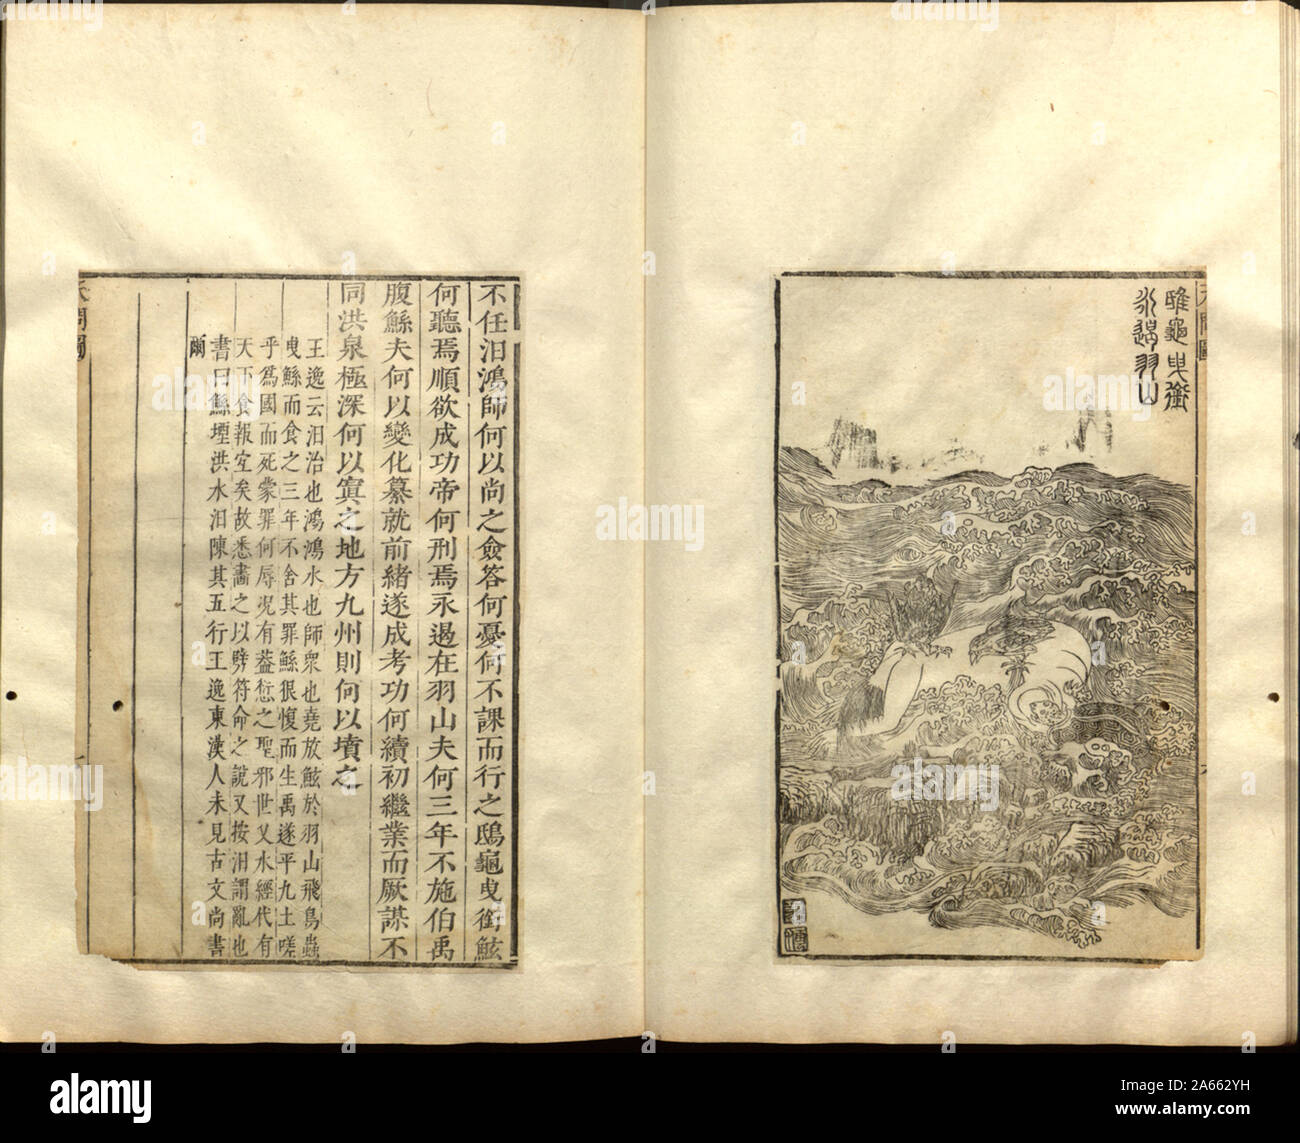 天問圖
鴟龜曳銜
永遏羽山
不任汩鴻師何以尚之僉答何憂何不課而行之鴟龜曳銜鮌
何聽焉順欲成功帝何刑焉永遏在羽山夫何三年不施伯禹
腹鯀夫何以變化纂就前緒遂成考功何續初繼業而厥謀不
同洪泉極深何以窴之地方九州則何以墳之
王逸云汩治也鴻鴻水也師衆也堯放鮌於羽山飛鳥蟲
曳鯀而食之三年不舍其罪鯀很愎而生禹遂平九土嗟
乎爲國而死蒙罪何辱況有葢愆之聖邪世乂水經代有
天下食報宐矣故悉畵之以劈符命之說又按汩謂亂也
書曰鯀堙洪水汩陳其五行王逸東漢人未見古文尚書
爾
alamy
Image ID: 2A662YH
www.alamy.com